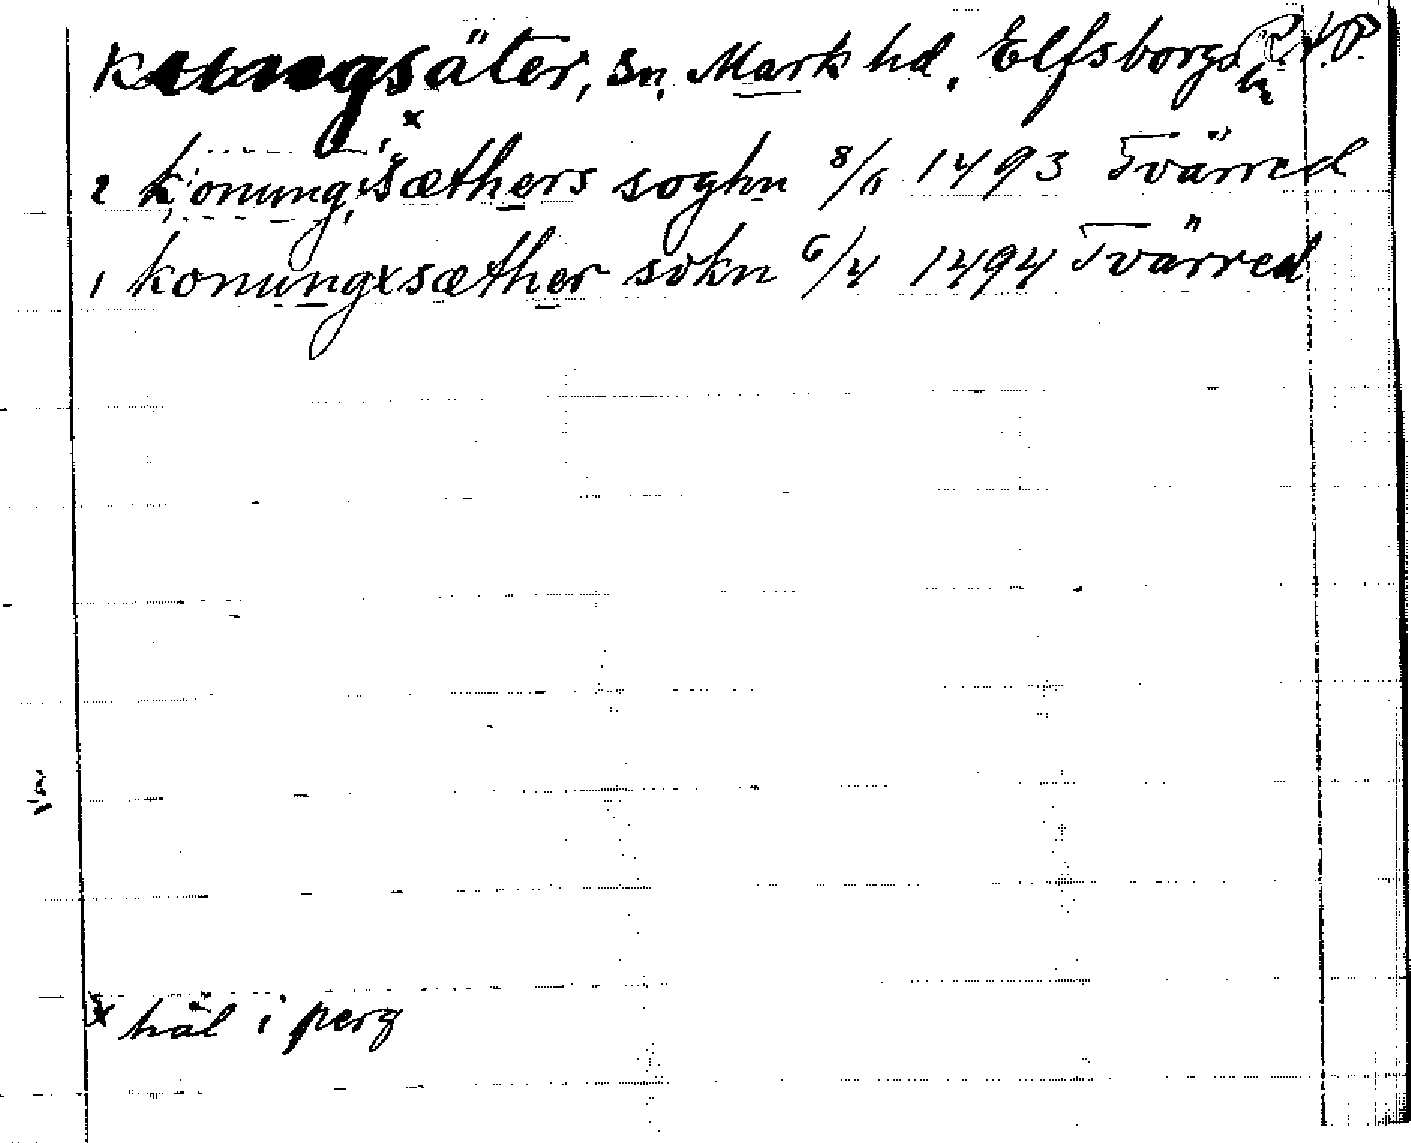 Kungsäter, sn, Mark hd, Elfsborgs R.A.P.
2 konungxsæthers soghn 8/11 1493 Tvärred
1 konungxsæther sokn 6/4 1494 Tvärred
x hål i perg